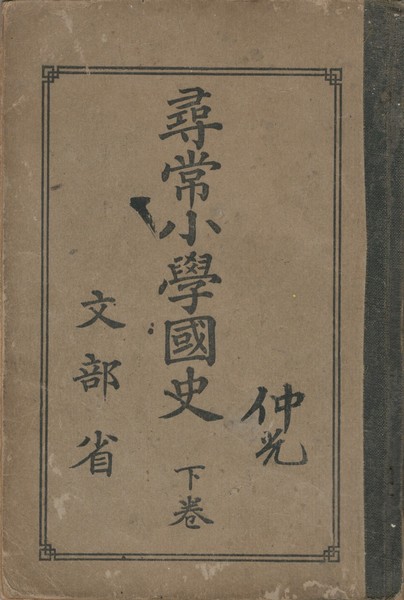 仲光
尋常小學國史 下卷
文部省